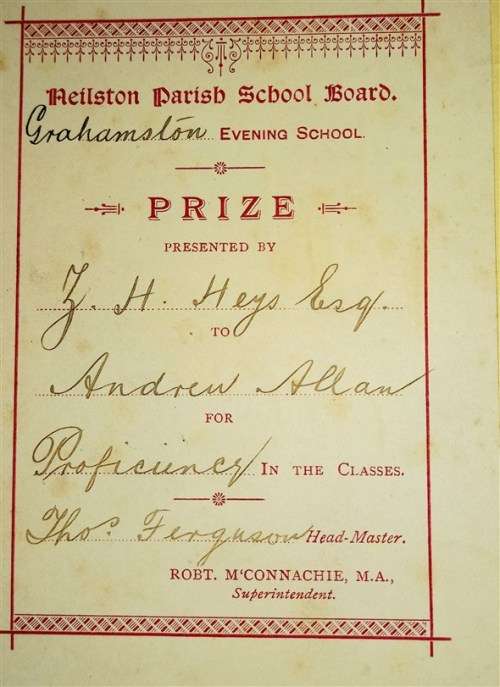 Neilston Parish School Board.
Grahamston EVENING SCHOOL.
PRIZE
PRESENTED BY
Z. H. Heys Esq.
TO
Andrew Allan
FOR
Proficiency IN THE CLASSES.
Thos. Ferguson Head-Master.
ROBT. M'CONNACHIE, M.A.,
Superintendent.